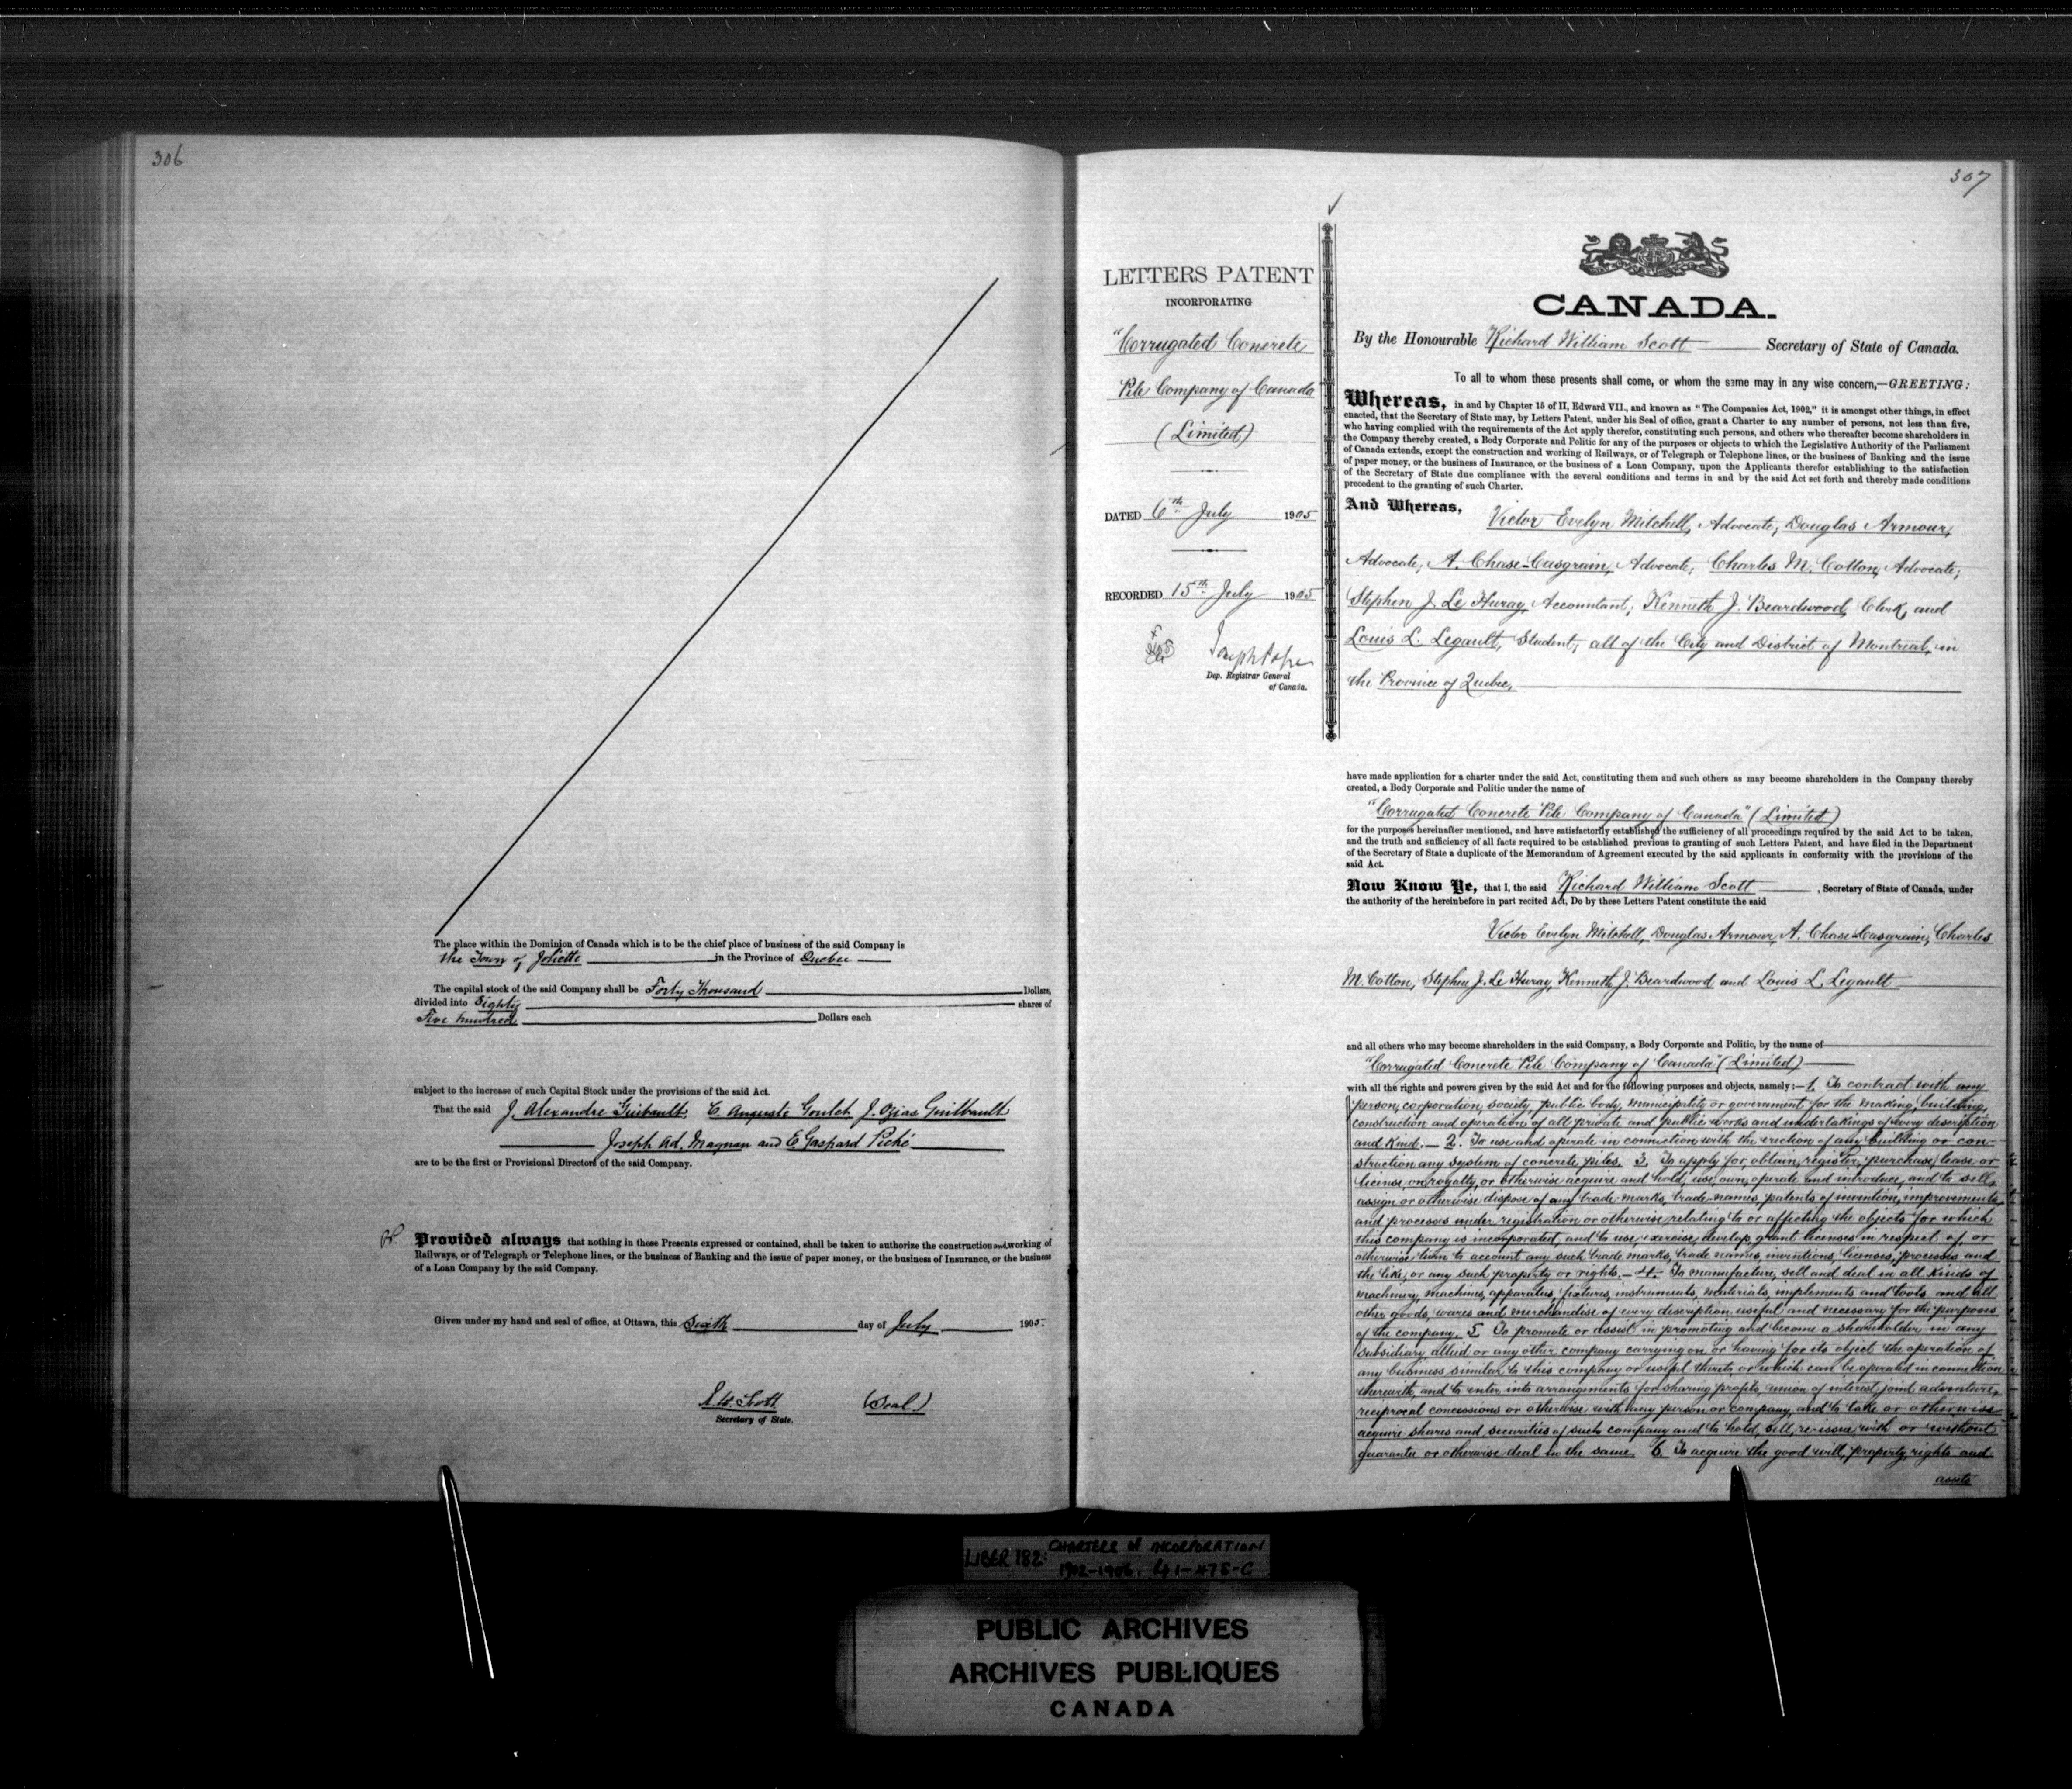 306
The place within the Dominion of Canada which is to be the chief place of business of the said Company is
the Town of Joliette in the Province of Quebec
The capital stock of the said Company shall be Forty Thousand Dollars,
divided into Eighty shares of
Five hundred Dollars each
subject to the increase of such Capital Stock under the provisions of the said Act.
That the said J. Alexandre Guibault, C. Auguste J. Ozias Guilbault
Joseph Ad. Magnan and E Gaspard Piché
are to be the first or Provisional Directors of the said Company.
Provided always that nothing in these Presents expressed or contained, shall be taken to authorize the construction and working of
Railways, or of Telegraph or Telephone lines, or the business of Banking and the issue of paper money, or the business of Insurance, or the business
of a Loan Company by the said Company.
Given under my hand and seal of office, at Ottawa, this Sixth day of July 1905.
R. W. Scott (Seal)
Secretary of State.
307
LETTERS PATENT
INCORPORATING
"Corrugated Concrete
Pile Company of Canada"
(Limited)
DATED 6th July 1905
RECORDED 15th July 1905
Joseph Pope
Dep. Registrar General
of Canada.
CANADA.
By the Honourable Richard William Scott Secretary of State of Canada.
To all to whom these presents shall come, or whom the same may in any wise concern,—GREETING:
Whereas, in and by Chapter 15 of II, Edward VII., and known as "The Companies Act, 1902," it is amongst other things, in effect
enacted, that the Secretary of State may, by Letters Patent, under his Seal of office, grant a Charter to any number of persons, not less than five,
who having complied with the requirements of the Act apply therefor, constituting such persons, and others who thereafter become shareholders in
the Company thereby created, a Body Corporate and Politic for any of the purposes or objects to which the Legislative Authority of the Parliament
of Canada extends, except the construction and working of Railways, or of Telegraph or Telephone lines, or the business of Banking and the issue
of paper money, or the business of Insurance, or the business of a Loan Company, upon the Applicants therefor establishing to the satisfaction
of the Secretary of State due compliance with the several conditions and terms in and by the said Act set forth and thereby made conditions
precedent to the granting of such Charter.
And Whereas, Victor Evelyn Mitchell, Advocate; Douglas Armour,
Advocate; A. Chase-Casgrain, Advocate; Charles M. Cotton, Advocate;
Stephen J. Le Huray, Accountant; Kenneth J. Beardwood, Clerk, and
Louis L. Legault, Student; all of the City and District of Montreal, in
the Province of Quebec,
have made application for a charter under the said Act, constituting them and such others as may become shareholders in the Company thereby
created, a Body Corporate and Politic under the name of
"Corrugated Concrete Pile Company of Canada" (Limited)
for the purposes hereinafter mentioned, and have satisfactorily established the sufficiency of all proceedings required by the said Act to be taken,
and the truth and sufficiency of all facts required to be established previous to granting of such Letters Patent, and have filed in the Department
of the Secretary of State a duplicate of the Memorandum of Agreement executed by the said applicants in conformity with the provisions of the
said Act.
Now Know Ye, that I, the said Richard William Scott, Secretary of State of Canada, under
the authority of the hereinbefore in part recited Act, Do by these Letters Patent constitute the said
Victor Evelyn Mitchell, Douglas Armour, A. Chase-Casgrain, Charles
M. Cotton, Stephen J. Le Huray, Kenneth J. Beardwood and Louis L. Legault
and all others who may become shareholders in the said Company, a Body Corporate and Politic, by the name of
"Corrugated Concrete Pile Company of Canada" (Limited)
with all the rights and powers given by the said Act and for the following purposes and objects, namely:—1. To contract with any
person, corporation, society, public body, municipality or government for the making, building,
construction and operation of all private and public works and undertakings of every description
and kind.— 2. To use and operate in connection with the erection of any building or con-
struction any system of concrete piles. 3. To apply for, obtain, register, purchase, lease or
license, on royalty, or otherwise acquire and hold, use, own, operate and introduce, and to sell,
assign or otherwise dispose of any trade-marks, trade-names, patents of invention, improvements
and processes under registration or otherwise relating to or affecting the objects for which
this company is incorporated, and to use, exercise, develop, grant licenses in respect of or
otherwise turn to account any such trade marks, trade names, inventions, licenses, processes and
the like, or any such property or rights.— 4. To manufacture, sell and deal in all kinds of
machinery, machines, apparatus, fixtures, instruments, materials, implements and tools and all
other goods, wares and merchandise of every description useful and necessary for the purposes
of the company. 5. To promote or assist in promoting and become a shareholder in any
subsidiary allied or any other company carrying on or having for its object the operation of
any business similar to this company or useful thereto or which can be operated in connection
therewith, and to enter into arrangements for sharing profits, union of interest, joint adventure,
reciprocal concessions or otherwise with any person or company, and to take or otherwise
acquire shares and securities of such company and to hold, sell, re-issue, with or without
guarantee or otherwise deal in the same. 6. To acquire the good will, property, rights and
assets
LIBER 182: CHARTERS OF INCORPORATION
1902-1906. 41-478-C
PUBLIC ARCHIVES
ARCHIVES PUBLIQUES
CANADA